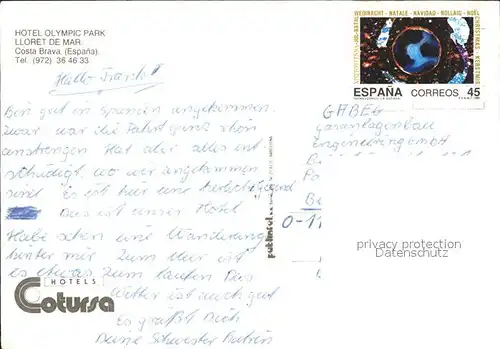 HOTEL OLYMPIC PARK
LLORET DE MAR
Costa Brava. (España)
Tel. (972) 36 46 33
WEIHNACHT - NATALE - NAVIDAD - NOLLAIG - NOËL
CHRISTMAS - KERSTMIS
ESPAÑA CORREOS 45
Hallo Frank !
Bin gut in Spanien angekommen.
Zwar war die Fahrt ganz schön
anstrengen Hat aber alles ent-
schädigt, wo wir angekommen
sind Es ist hier eine herrliche Gegend
Das ist unser Hotel
Habe schon eine Wanderung
hinter mir Zum Meer ist
es etwas zum laufen Das
Wetter ist auch gut
Es grüßt Dich
Deine Schwester Katrin
GABEG
gasanlagenbau
engineering gmbH
O-11
privacy protection
Datenschutz
HOTELS
Cotursa